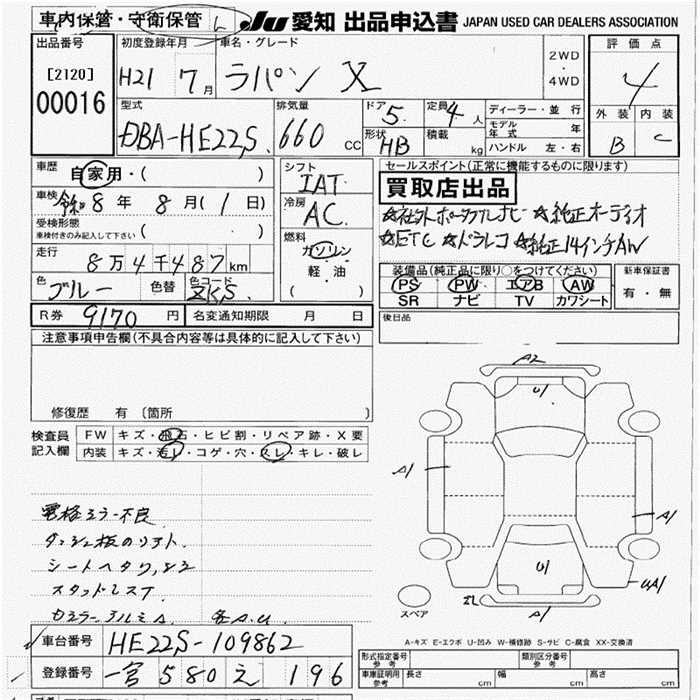 車内保管・守衛保管
JU 愛知 出品申込書 JAPAN USED CAR DEALERS ASSOCIATION
出品番号
[2120]
00016
初度登録年月
H21 7月
車名・グレード
ラパン X
2WD
・
4WD
評価点
4
外装 内装
B C
型式
DBA-HE22S
排気量
660 CC
ドア 5
形状 HB
定員 4人
積載 kg
ディーラー・並行
モデル年式 年
ハンドル 左・右
車歴
自家用・( )
車検 令和8年8月(1日)
受検形態
車検付きのみ記入して下さい ( )
走行
8万4千487km
色 ブルー 色替 色コード ZKS
シフト
IAT
冷房
AC
燃料
ガソリン
軽油
( )
セールスポイント(正常に機能するものに限ります)
買取店出品
☆社外ポータブルナビ ☆純正オーディオ
☆ETC ☆ドラレコ ☆純正14インチAW
装備品(純正品に限り○をつけてください)
PS PW エアB AW
SR ナビ TV カワシート
新車保証書
有・無
R券 9170円 名変通知期限 月 日
後日品
注意事項申告欄(不具合内容等は具体的に記入して下さい)
修復歴 有 〔箇所 〕
検査員記入欄
FW キズ・飛石・ヒビ割・リペア跡・X要
内装 キズ・汚レ・コゲ・穴・スレ・キレ・破レ
電格ミラー不良
ダッシュ板のリフト
シートヘタリ
A2
U1
A1
A1
U1
UA1
A1
スペア
A-キズ E-エクボ U-凹み W-補修跡 S-サビ C-腐食 XX-交換済
車台番号 HE22S-109862
登録番号 一宮 580 え 196
形式指定番号 参考
類別区分番号 参考
車庫証明用 参考 長さ cm 幅 cm 高さ cm